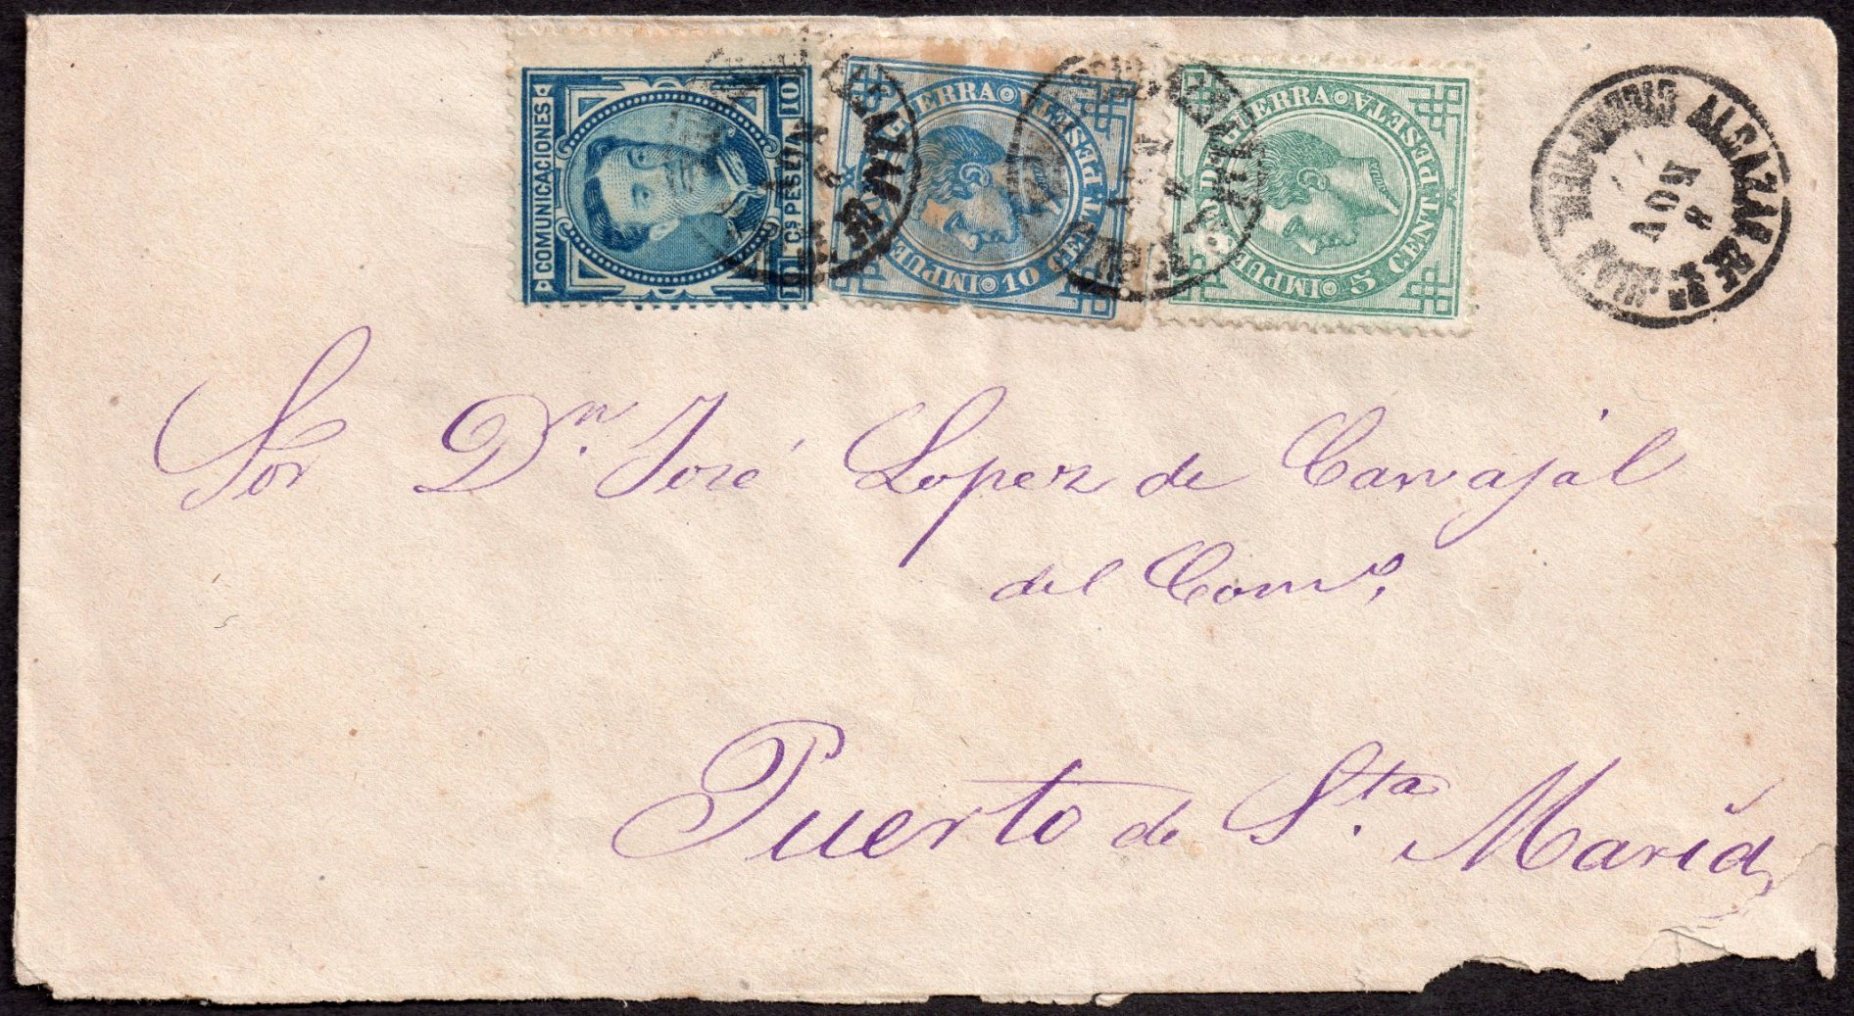 COMUNICACIONES
10 Cs PESETA 10
GUERRA PESETA
IMPUE 10 CENT
GUERRA PESETA
IMPUE 5 CENT
ALCAZAR DE Sn JUAN
8
NOV
Sor Dn. José Lopez de Carvajal
del Como,
Puerto de Sta. María